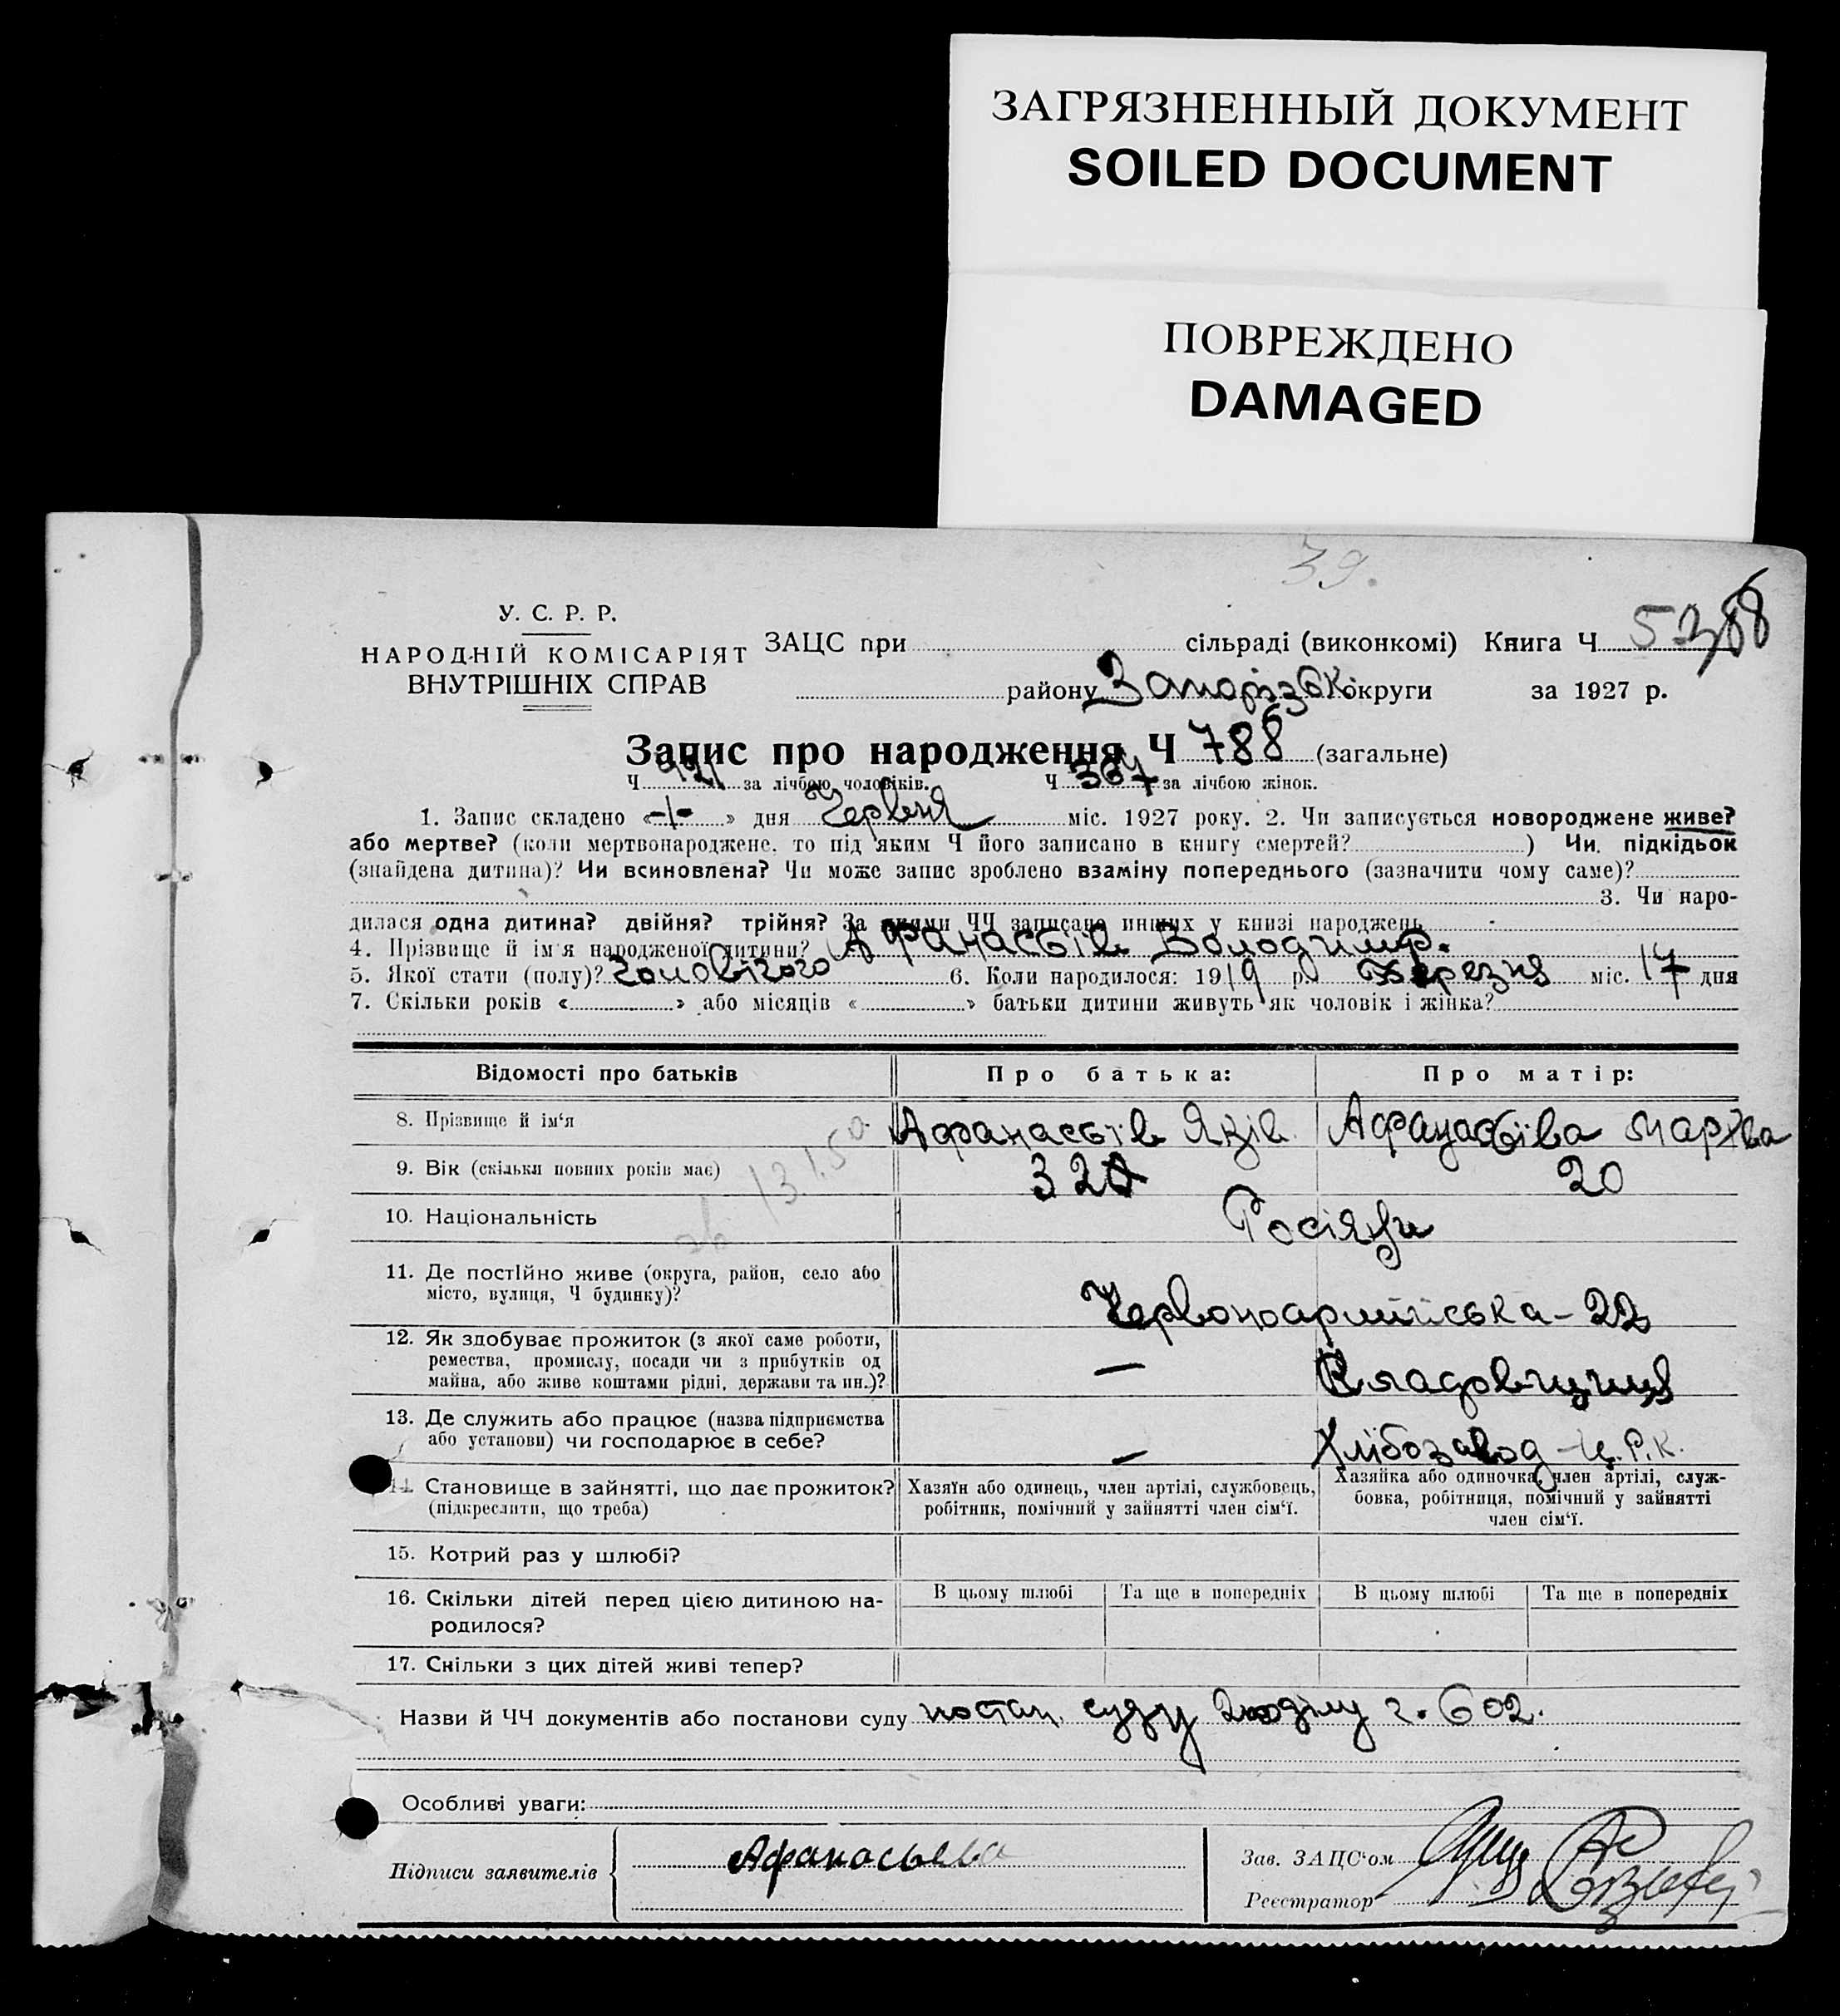 ЗАГРЯЗНЕННЫЙ ДОКУМЕНТ
SOILED DOCUMENT
ПОВРЕЖДЕНО
DAMAGED
39.
У. С. Р. Р.
НАРОДНІЙ КОМІСАРІЯТ
ВНУТРІШНІХ СПРАВ
ЗАЦС при сільраді (виконкомі) Книга Ч
району Запорізьк округи за 1927 р.
Запис про народження Ч 788 (загальне)
Ч 421 за лічбою чоловіків. Ч 367 за лічбою жінок.
1. Запис складено «-1-» дня Червня міс. 1927 року. 2. Чи записується новороджене живе?
або мертве? (коли мертвонароджене, то під яким Ч його записано в книгу смертей? ) Чи підкідьок
(знайдена дитина)? Чи всиновлена? Чи може запис зроблено взаміну попереднього (зазначити чому саме)?
3. Чи наро-
дилася одна дитина? двійня? трійня? За якими ЧЧ записано инших у книзі народжень -
4. Прізвище й ім'я народженої дитини? Афанасьїв Володимир.
5. Якої стати (полу)? Чоловічого 6. Коли народилося: 1919 р. Березня міс. 17 дня
7. Скільки років « » або місяців « » батьки дитини живуть як чоловік і жінка?
Відомості про батьків Про батька: Про матір:
8. Прізвище й ім'я Афанасьїв Яків Афанасьїва Мархва
9. Вік (скільки повних років має) 32 20
10. Національність Росіяни
11. Де постійно живе (округа, район, село або
місто, вулиця, Ч будинку)?
Червоноармійська - 22
12. Як здобуває прожиток (з якої саме роботи,
ремества, промислу, посади чи з прибутків од
майна, або живе коштами рідні, держави та ин.)?
— Кладовщиця
13. Де служить або працює (назва підприємства
або установи) чи господарює в себе?
— Хлібозавод - Ц.Р.К.
14. Становище в зайнятті, що дає прожиток?
(підкреслити, що треба)
Хазяїн або одинець, член артілі, службовець,
робітник, помічний у зайнятті член сім'ї.
Хазяйка або одиночка, член артілі, служ-
бовка, робітниця, помічний у зайнятті
член сім'ї.
15. Котрий раз у шлюбі?
16. Скільки дітей перед цією дитиною на-
родилося?
В цьому шлюбі Та ще в попередніх В цьому шлюбі Та ще в попередніх
17. Скільки з цих дітей живі тепер?
Назви й ЧЧ документів або постанови суду постан. суду 602.
Особливі уваги:
Підписи заявителів Афанасьева
Зав. ЗАЦС'ом
Реєстратор